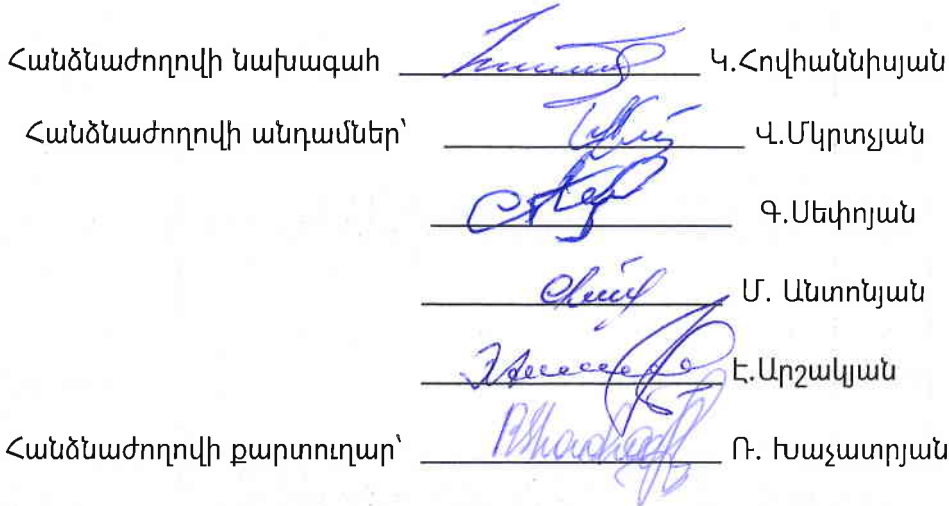 Հանձնաժողովի նախագահ Կ.Հովհաննիսյան
Հանձնաժողովի անդամներ՝ Վ.Մկրտչյան
Գ.Սեփոյան
Մ. Անտոնյան
Է.Արշակյան
Հանձնաժողովի քարտուղար՝ Ռ. Խաչատրյան